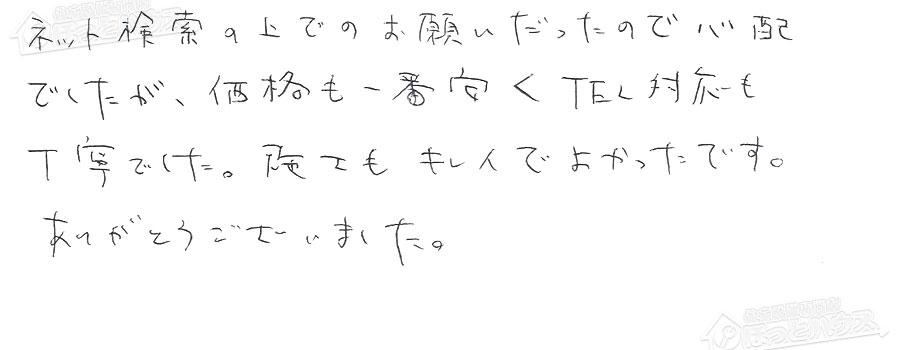 ネット検索の上でのお願いだったので心配
でしたが、価格も一番安くTEL対応も
丁寧でした。施工もキレイでよかったです。
ありがとうございました。
ほっとハウス